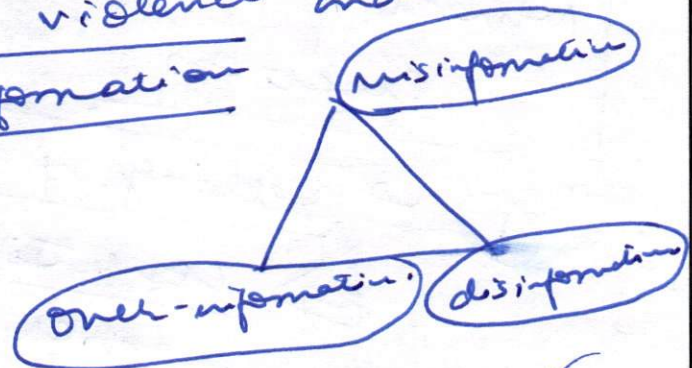 violence and
formation
misinformation
over-information.
disinformation